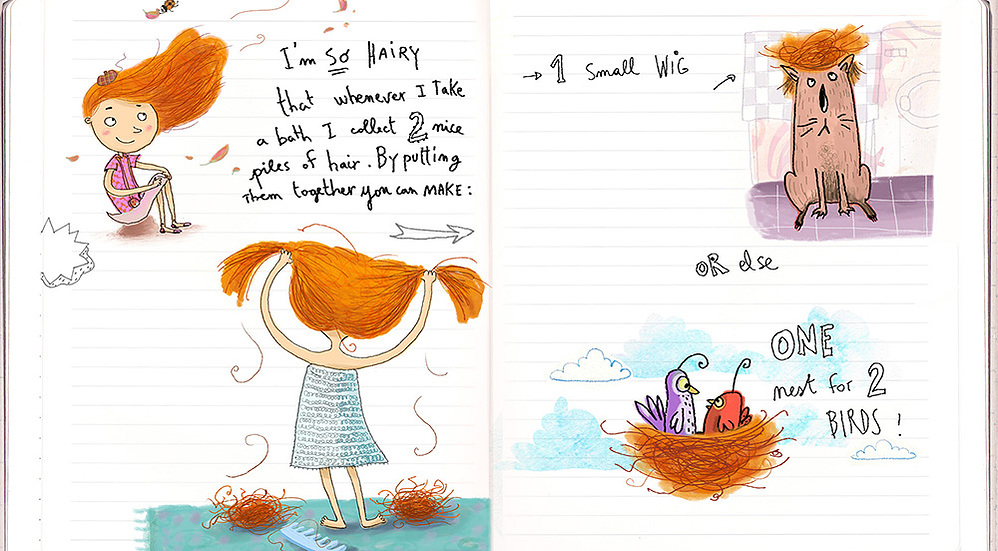 I'm SO HAIRY
that whenever I Take
a bath I collect 2 nice
piles of hair. By putting
them together you can MAKE:
→ 1 small WiG
OR else
ONE
nest for 2
BIRDS!